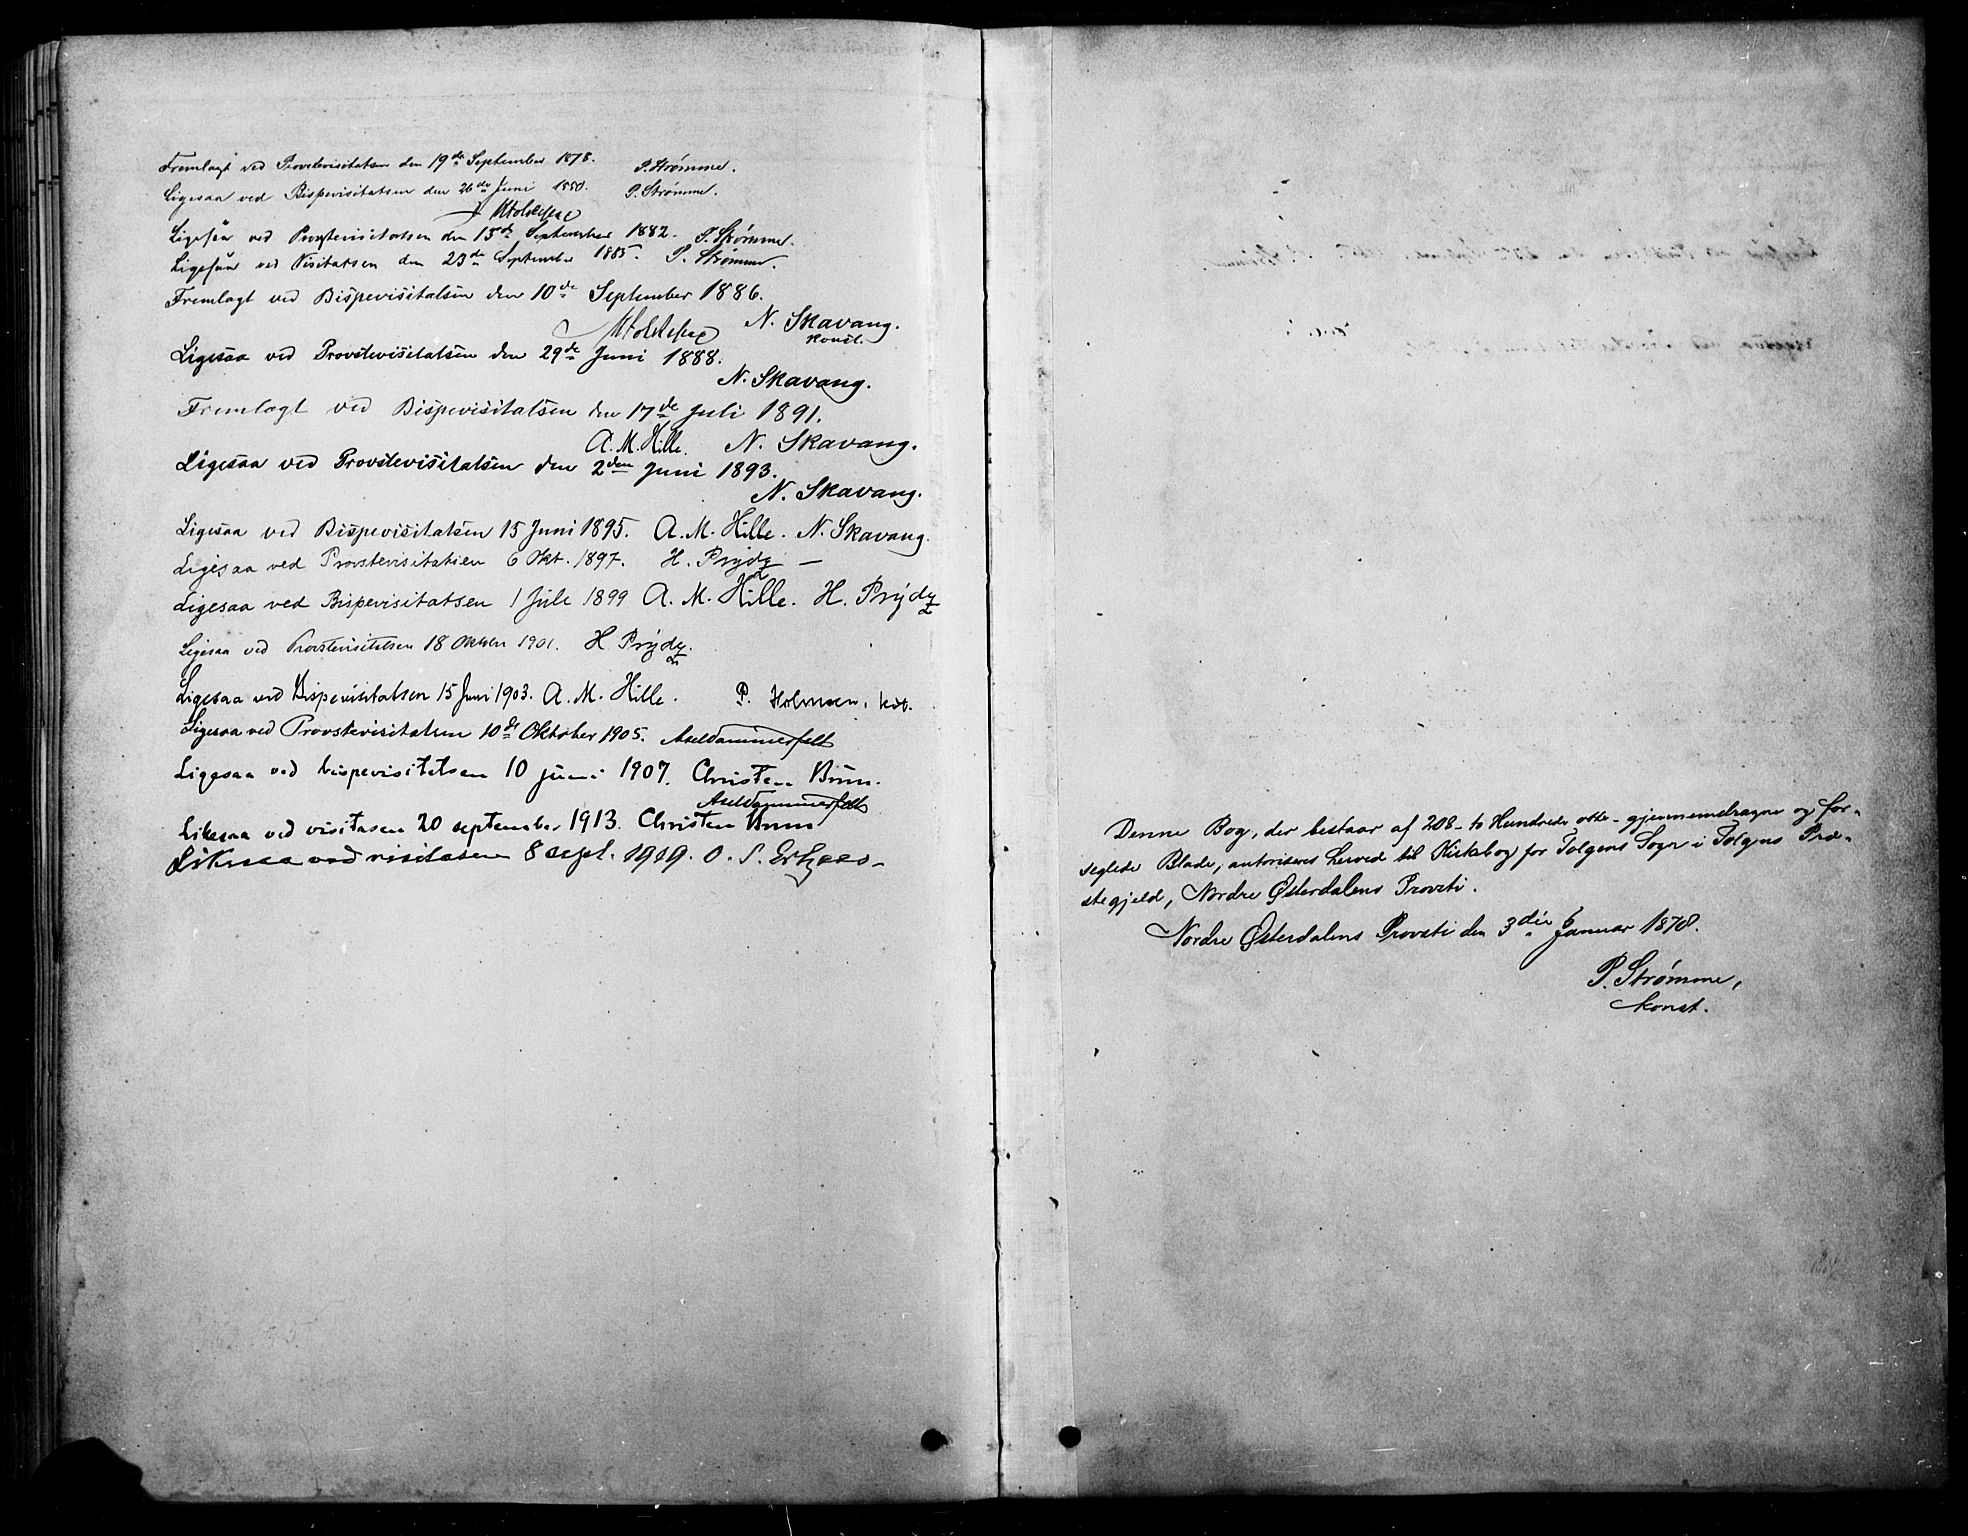 Fremlagt ved Provstevisitatsen den 19de September 1878. P. Strømme.
Ligesaa ved Bispevisitatsen den 26de Juni 1880. P. Strømme.
Ligesaa ved Provstevisitatsen den 15de September 1882. P. Strømme.
Ligesaa ved Visitatsen den 23de September 1885. P. Strømme.
Fremlagt ved Bispevisitatsen den 10de September 1886.
N. Skavang.
konst.
Ligesaa ved Provstevisitatsen den 29de Juni 1888.
N. Skavang.
Fremlagt ved Bispevisitatsen den 17de Juli 1891.
A. M. Hille. N. Skavang.
Ligesaa ved Provstevisitatsen den 2den Juni 1893.
N. Skavang.
Ligesaa ved Bispevisitatsen 15 Juni 1895. A. M. Hille. N. Skavang.
Ligesaa ved Provstevisitatsen 6 Okt. 1897. H. Prydz
Ligesaa ved Bispevisitatsen 1 Juli 1899 A. M. Hille. H. Prydz
Ligesaa ved Provstevisitatsen 18 Oktober 1901. H Prydz.
Ligesaa ved Bispevisitatsen 15 Juni 1903. A. M. Hille. P. Holmsen, kst.
Ligesaa ved Provstevisitatsen 10de Oktober 1905. Axel Dammerfelt
Ligesaa ved bispevisitatsen 10 juni 1907. Christen Brun.
Axel Dammerfelt
Likesaa ved visitasen 20 september 1913. Christen Brun
Likesaa ved visitasen 8 sept. 1919. O. S.
Denne Bog, der bestaar af 208 - to Hundrede otte - gjennemdragne og for-
seglede Blade, autoriseres herved til Kirkebog for Tolgens Sogn i Tolgens Præ-
stegjeld, Nordre Østerdalens Provsti.
Nordre Østerdalens Provsti den 3die Januar 1878.
P. Strømme,
konst.